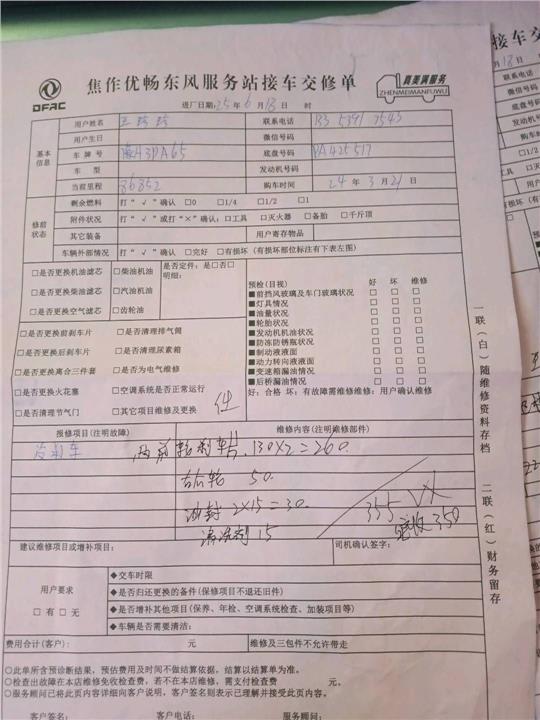 DFAC
焦作优畅东风服务站接车交修单
真美满服务
ZHENMEIMANFUWU
进厂日期:25年6月13日 时
基本信息
用户姓名 联系电话
用户生日 微信号码
车牌号 豫H3PA65 底盘号码 PA425517
车 型 发动机号码
当前里程 86852 购车时间 24年3月21日
修前状态
剩余燃料 打“√”确认 □0 □1/4 □1/2 □1
附件状况 打“√”或打“×”确认:□工具 □灭火器 □备胎 □千斤顶
其它装备 用户寄存物品
车辆外部情况 打“√”确认 □完好 □有损坏(有损坏部位标注有下表左图)
□是否更换机油滤芯 □柴油机油 是否定件:是□否□
□是否更换柴油滤芯 □汽油机油 明细:
□是否更换空气滤芯 □齿轮油
□是否更换前刹车片 □是否清理排气筒
□是否更换后刹车片 □是否清理尿素箱
□是否更换离合三件套 □是否为电气维修
□是否更换火花塞 □空调系统是否正常运行
□是否清理节气门 □其它项目维修及更换
预检(目视) 好 坏 维修
■前挡风玻璃及车门玻璃状况 □ □ □
■灯具情况 □ □ □
■油量状况 □ □ □
■轮胎状况 □ □ □
■发动机机油状况 □ □ □
■防冻防锈瓶状况 □ □ □
■制动液液面 □ □ □
■动力转向液液面 □ □ □
■变速箱漏油情况 □ □ □
■后桥漏油情况 □ □ □
好:合格 坏:有故障需维修维修:用户确认维修
报修项目(注明故障) 维修内容(注明维修部件)
刹车 两前轮刹车片 130×2=260
右后轮 50
油封 2×15=30
清洗剂 15
355
350
建议维修项目或增补项目: 司机确认签字:
用户要求
□有 □无
◆交车时限
◆是否归还更换的备件(保修项目不退还旧件)
◆是否增补其他项目(保养、年检、空调系统检查、加装项目等)
◆车辆是否需要清洁:
费用合计(客户): 元 维修及三包件不允许带走
○此单所含预诊断结果,预估费用及时间不做结算依据,结算以结算单为准。
○检查出故障在本店维修免收检查费,若不在本店维修,需支付检查费 元。
○服务顾问已将此页内容详细向客户说明,客户签名则表示已理解并接受此页内容。
客户签名: 客户电话: 服务顾问:
一联(白)随维修资料存档
二联(红)财务留存
接车交修